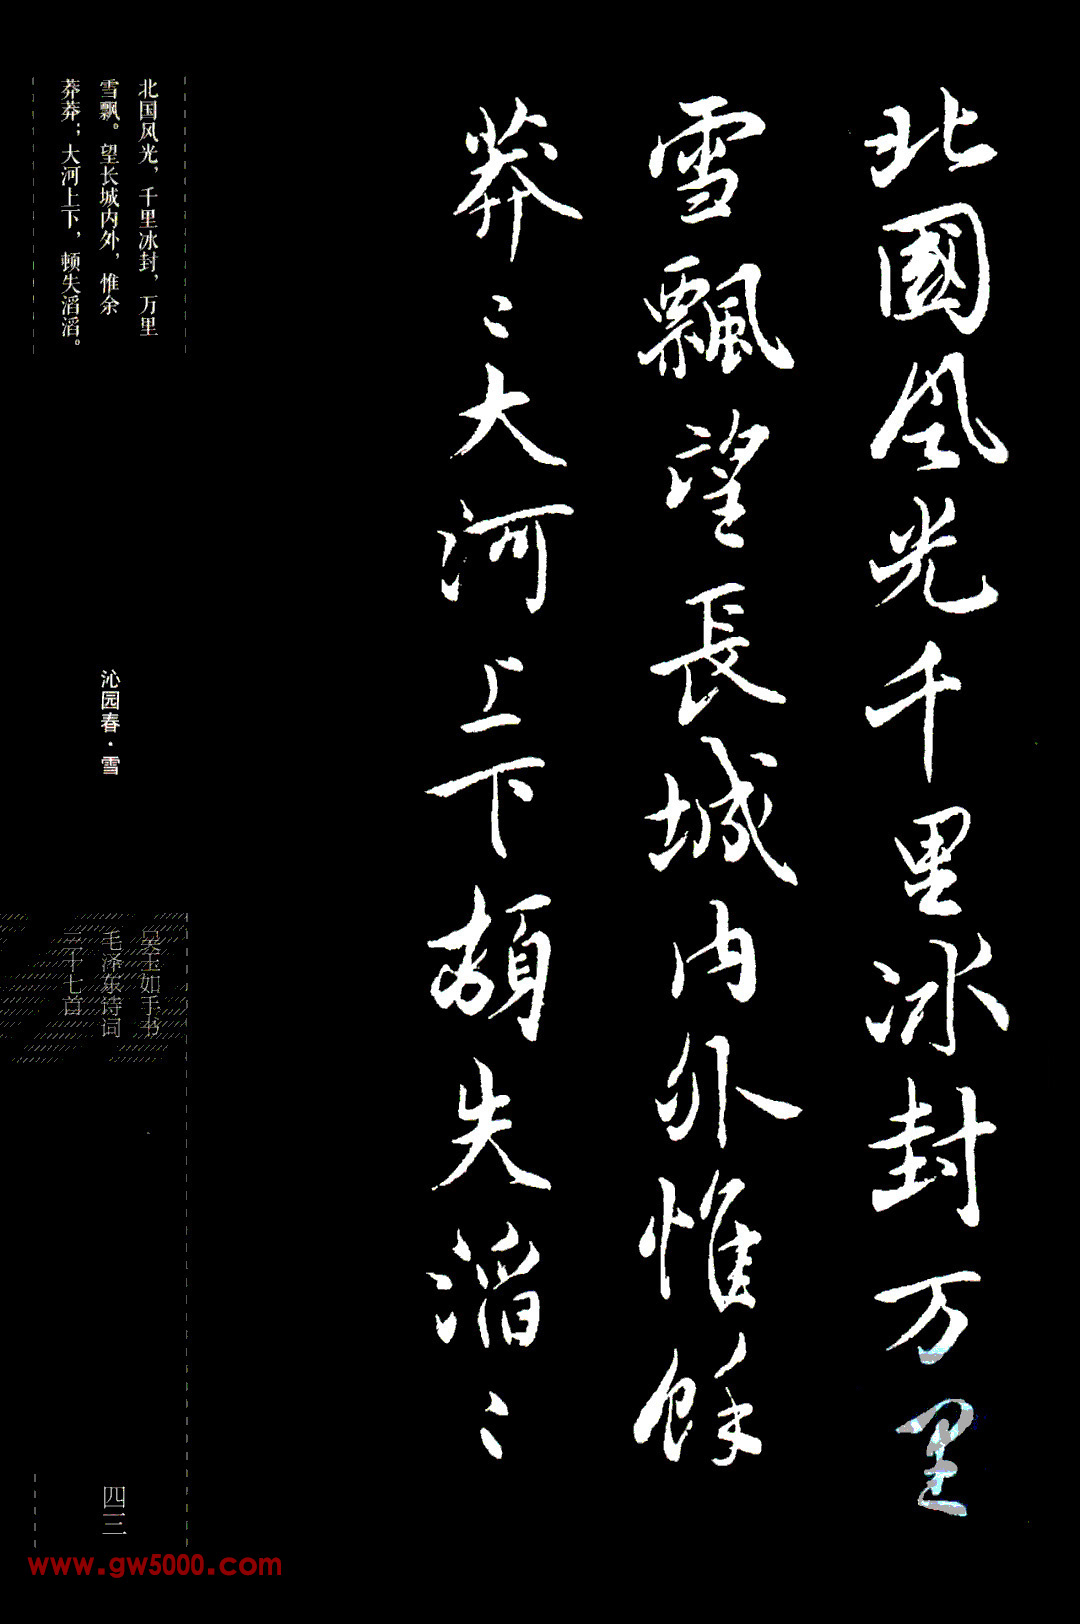 北國風光千里冰封万里
雪飄望長城内外惟餘
莽〻大河上下頓失滔〻
北国风光，千里冰封，万里
雪飘。望长城内外，惟余
莽莽；大河上下，顿失滔滔。
沁园春·雪
吴玉如手书
毛泽东诗词
三十七首
四三
www.gw5000.com